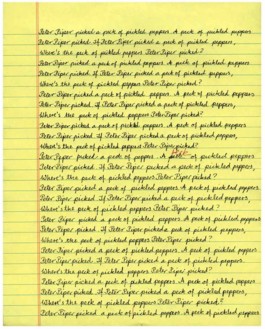 Peter Piper picked a peck of pickled peppers A peck of pickled peppers
Peter Piper picked. If Peter Piper picked a peck of pickled peppers,
Where's the peck of pickled peppers Peter Piper picked?
Peter Piper picked a peck of pickled peppers. A peck of pickled peppers
Peter Piper picked. If Peter Piper picked a peck of pickled peppers,
Where's the peck of pickled peppers Peter Piper picked?
Peter Piper picked a peck of pickled peppers. A peck of pickled peppers
Peter Piper picked. If Peter Piper picked a peck of pickled peppers,
Where's the peck of pickled peppers Peter Piper picked?
Peter Piper picked a peck of pickled peppers. A peck of pickled peppers
Peter Piper picked. If Peter Piper picked a peck of pickled peppers,
Where's the peck of pickled peppers Peter Piper picked?
Peter Piper picked a peck of peppers. A of pickled peppers
Peter Piper picked. If Peter Piper picked a peck of pickled peppers,
Where's the peck of pickled peppers Peter Piper picked?
Peter Piper picked a peck of pickled peppers A peck of pickled peppers
Peter Piper picked. If Peter Piper picked a peck of pickled peppers,
Where's the peck of pickled peppers Peter Piper picked?
Peter Piper picked a peck of pickled peppers. A peck of pickled peppers
Peter Piper picked. If Peter Piper picked a peck of pickled peppers,
Where's the peck of pickled peppers Peter Piper picked?
Peter Piper picked a peck of pickled peppers. A peck of pickled peppers
Peter Piper picked. If Peter Piper picked a peck of pickled peppers,
Where's the peck of pickled peppers Peter Piper picked?
Peter Piper picked a peck of pickled peppers. A peck of pickled peppers
Peter Piper picked. If Peter Piper picked a peck of pickled peppers,
Where's the peck of pickled peppers Peter Piper picked?
Peter Piper picked a peck of pickled peppers. A peck of pickled peppers